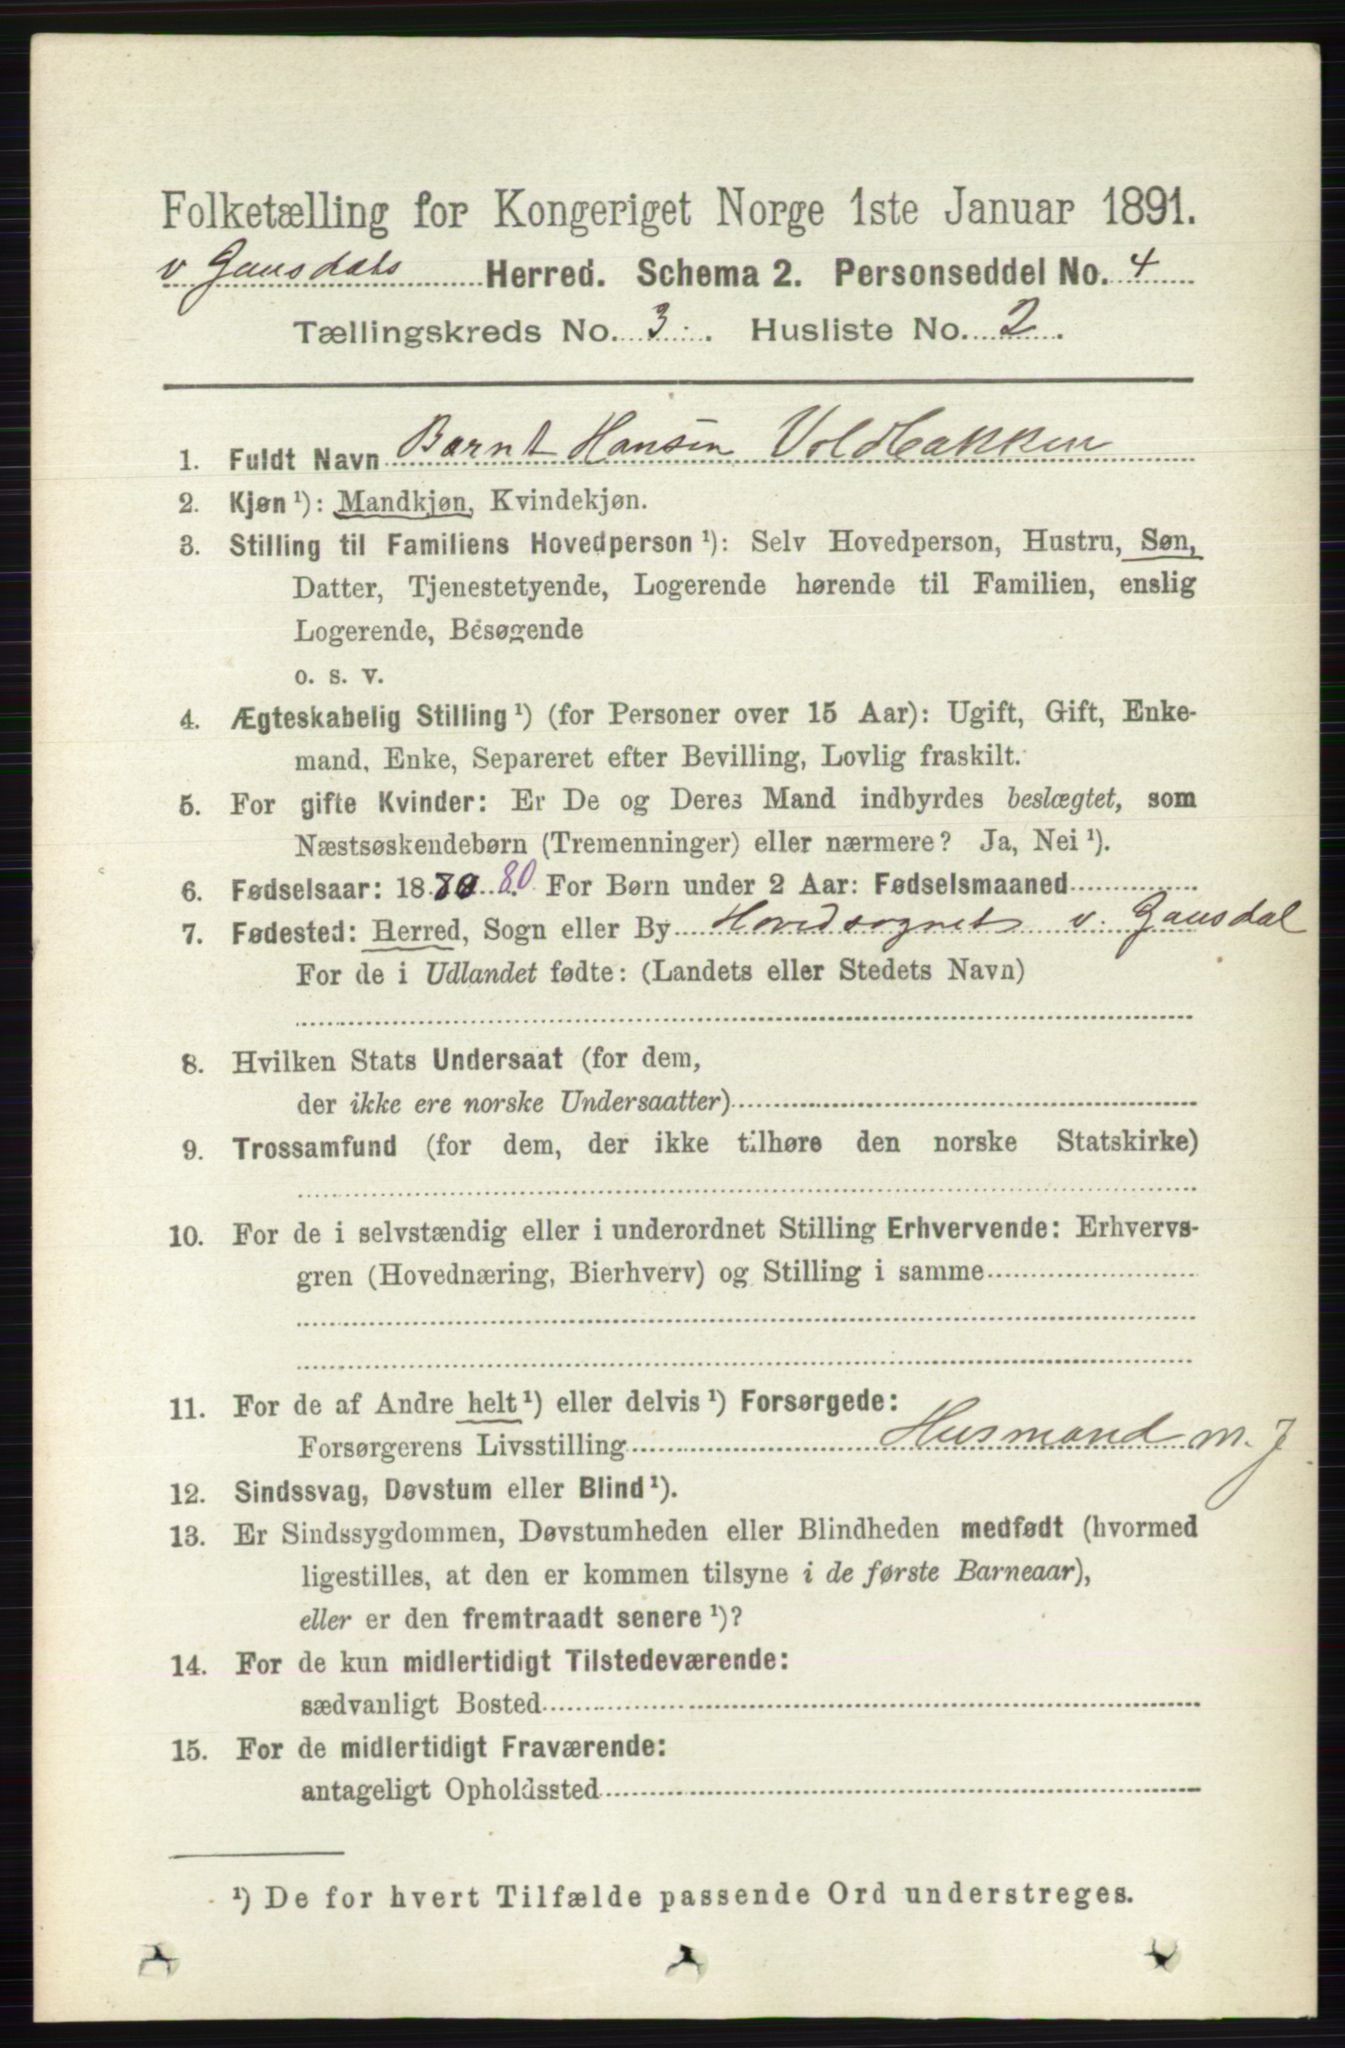 Folketælling for Kongeriget Norge 1ste Januar 1891.
v Gausdals Herred. Schema 2. Personseddel No. 4
Tællingskreds No. 3. Husliste No. 2.
1. Fuldt Navn Bernt Hansen Voldbakken
2. Kjøn ¹): Mandkjøn, Kvindekjøn.
3. Stilling til Familiens Hovedperson ¹): Selv Hovedperson, Hustru, Søn,
Datter, Tjenestetyende, Logerende hørende til Familien, enslig
Logerende, Besøgende
o. s. v.
4. Ægteskabelig Stilling ¹) (for Personer over 15 Aar): Ugift, Gift, Enke-
mand, Enke, Separeret efter Bevilling, Lovlig fraskilt.
5. For gifte Kvinder: Er De og Deres Mand indbyrdes beslægtet, som
Næstsøskendebørn (Tremenninger) eller nærmere? Ja, Nei ¹).
6. Fødselsaar: 1880 80. For Børn under 2 Aar: Fødselsmaaned
7. Fødested: Herred, Sogn eller By Hovedsognet v. Gausdal
For de i Udlandet fødte: (Landets eller Stedets Navn)
8. Hvilken Stats Undersaat (for dem,
der ikke ere norske Undersaatter)
9. Trossamfund (for dem, der ikke tilhøre den norske Statskirke)
10. For de i selvstændig eller i underordnet Stilling Erhvervende: Erhvervs-
gren (Hovednæring, Bierhverv) og Stilling i samme
11. For de af Andre helt ¹) eller delvis ¹) Forsørgede:
Forsørgerens Livsstilling Husmand m. J
12. Sindssvag, Døvstum eller Blind ¹).
13. Er Sindssygdommen, Døvstumheden eller Blindheden medfødt (hvormed
ligestilles, at den er kommen tilsyne i de første Barneaar),
eller er den fremtraadt senere ¹)?
14. For de kun midlertidigt Tilstedeværende:
sædvanligt Bosted
15. For de midlertidigt Fraværende:
antageligt Opholdssted
¹) De for hvert Tilfælde passende Ord understreges.